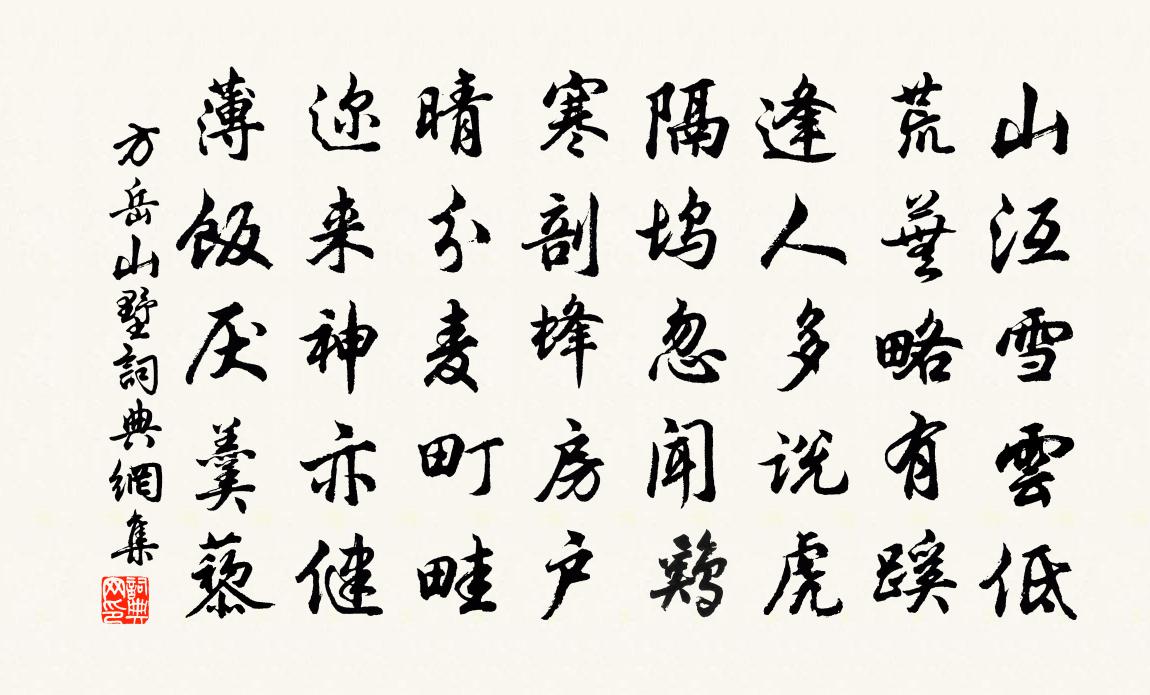 山沍雪雲低
荒蕪略有蹊
逢人多説虎
隔塢忽聞鷄
寒剖蜂房户
晴分麦町畦
迩来神亦健
薄飯厌羹藜
方岳山墅詞典網集
詞典網印